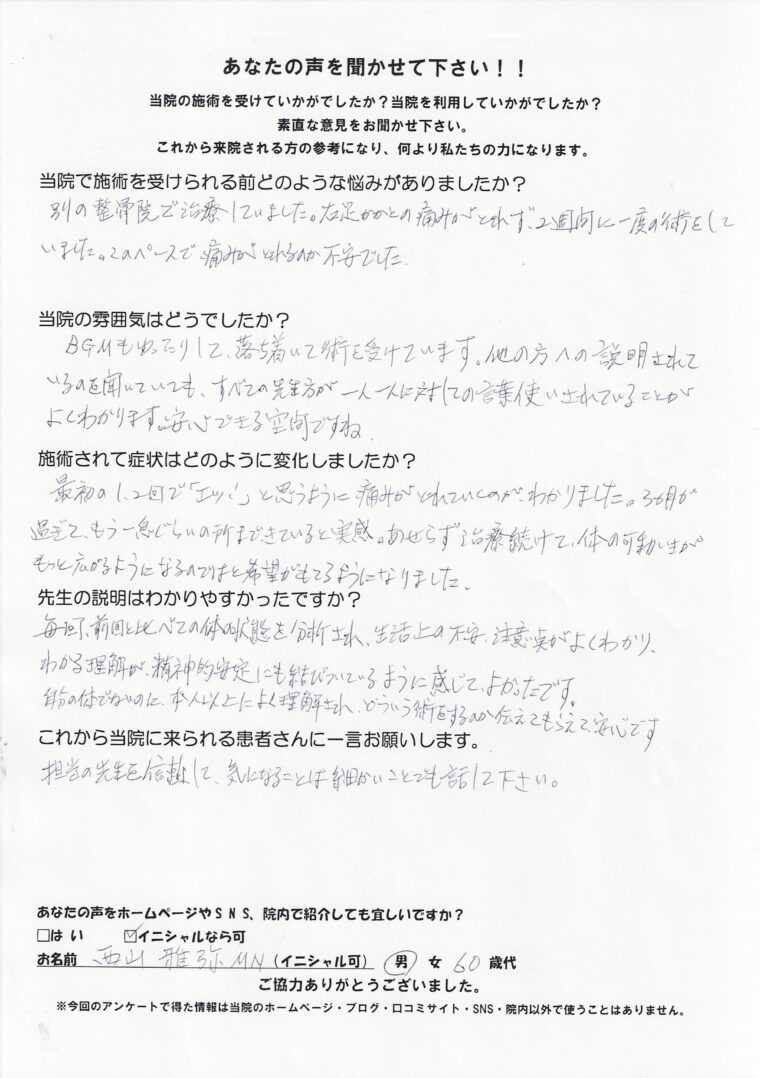 あなたの声を聞かせて下さい！！
当院の施術を受けていかがでしたか？当院を利用していかがでしたか？
素直な意見をお聞かせ下さい。
これから来院される方の参考になり、何より私たちの力になります。
当院で施術を受けられる前どのような悩みがありましたか？
別の整骨院で治療していました。左足かかとの痛みがとれず、2週間に一度の術をして
いました。このペースで、痛みがとれるのか不安でした。
当院の雰囲気はどうでしたか？
BGMもゆったりして、落ち着いて術を受けています。他の方への説明されて
いるのを聞いていても、すべての先生方が一人一人に対しての言葉使いされていることが
よくわかります。安心できる空間ですね。
施術されて症状はどのように変化しましたか？
最初の1、2回で「エッ！」と思うように痛みがとれていくのが、わかりました。3ヵ月が
過ぎて、もう一息ぐらいの所まできていると実感。あせらず治療続けて、体の可動いきが
もっと広がるようになるのではと希望がもてるようになりました。
先生の説明はわかりやすかったですか？
毎回、前回と比べての体の状態を分析され、生活上の不安、注意点がよくわかり、
わかる理解が、精神的安定にも結びついているように感じて、よかったです。
自分の体でないのに、本人以上によく理解され、どういう術をするのか伝えてもらえて安心です
これから当院に来られる患者さんに一言お願いします。
担当の先生を信頼して、気になることは細かいことでも話して下さい。
あなたの声をホームページやＳＮＳ、院内で紹介しても宜しいですか？
□はい ☑イニシャルなら可
お名前 西山 雅弥 MN (イニシャル可) 男 女 60 歳代
ご協力ありがとうございました。
※今回のアンケートで得た情報は当院のホームページ・ブログ・口コミサイト・SNS・院内以外で使うことはありません。